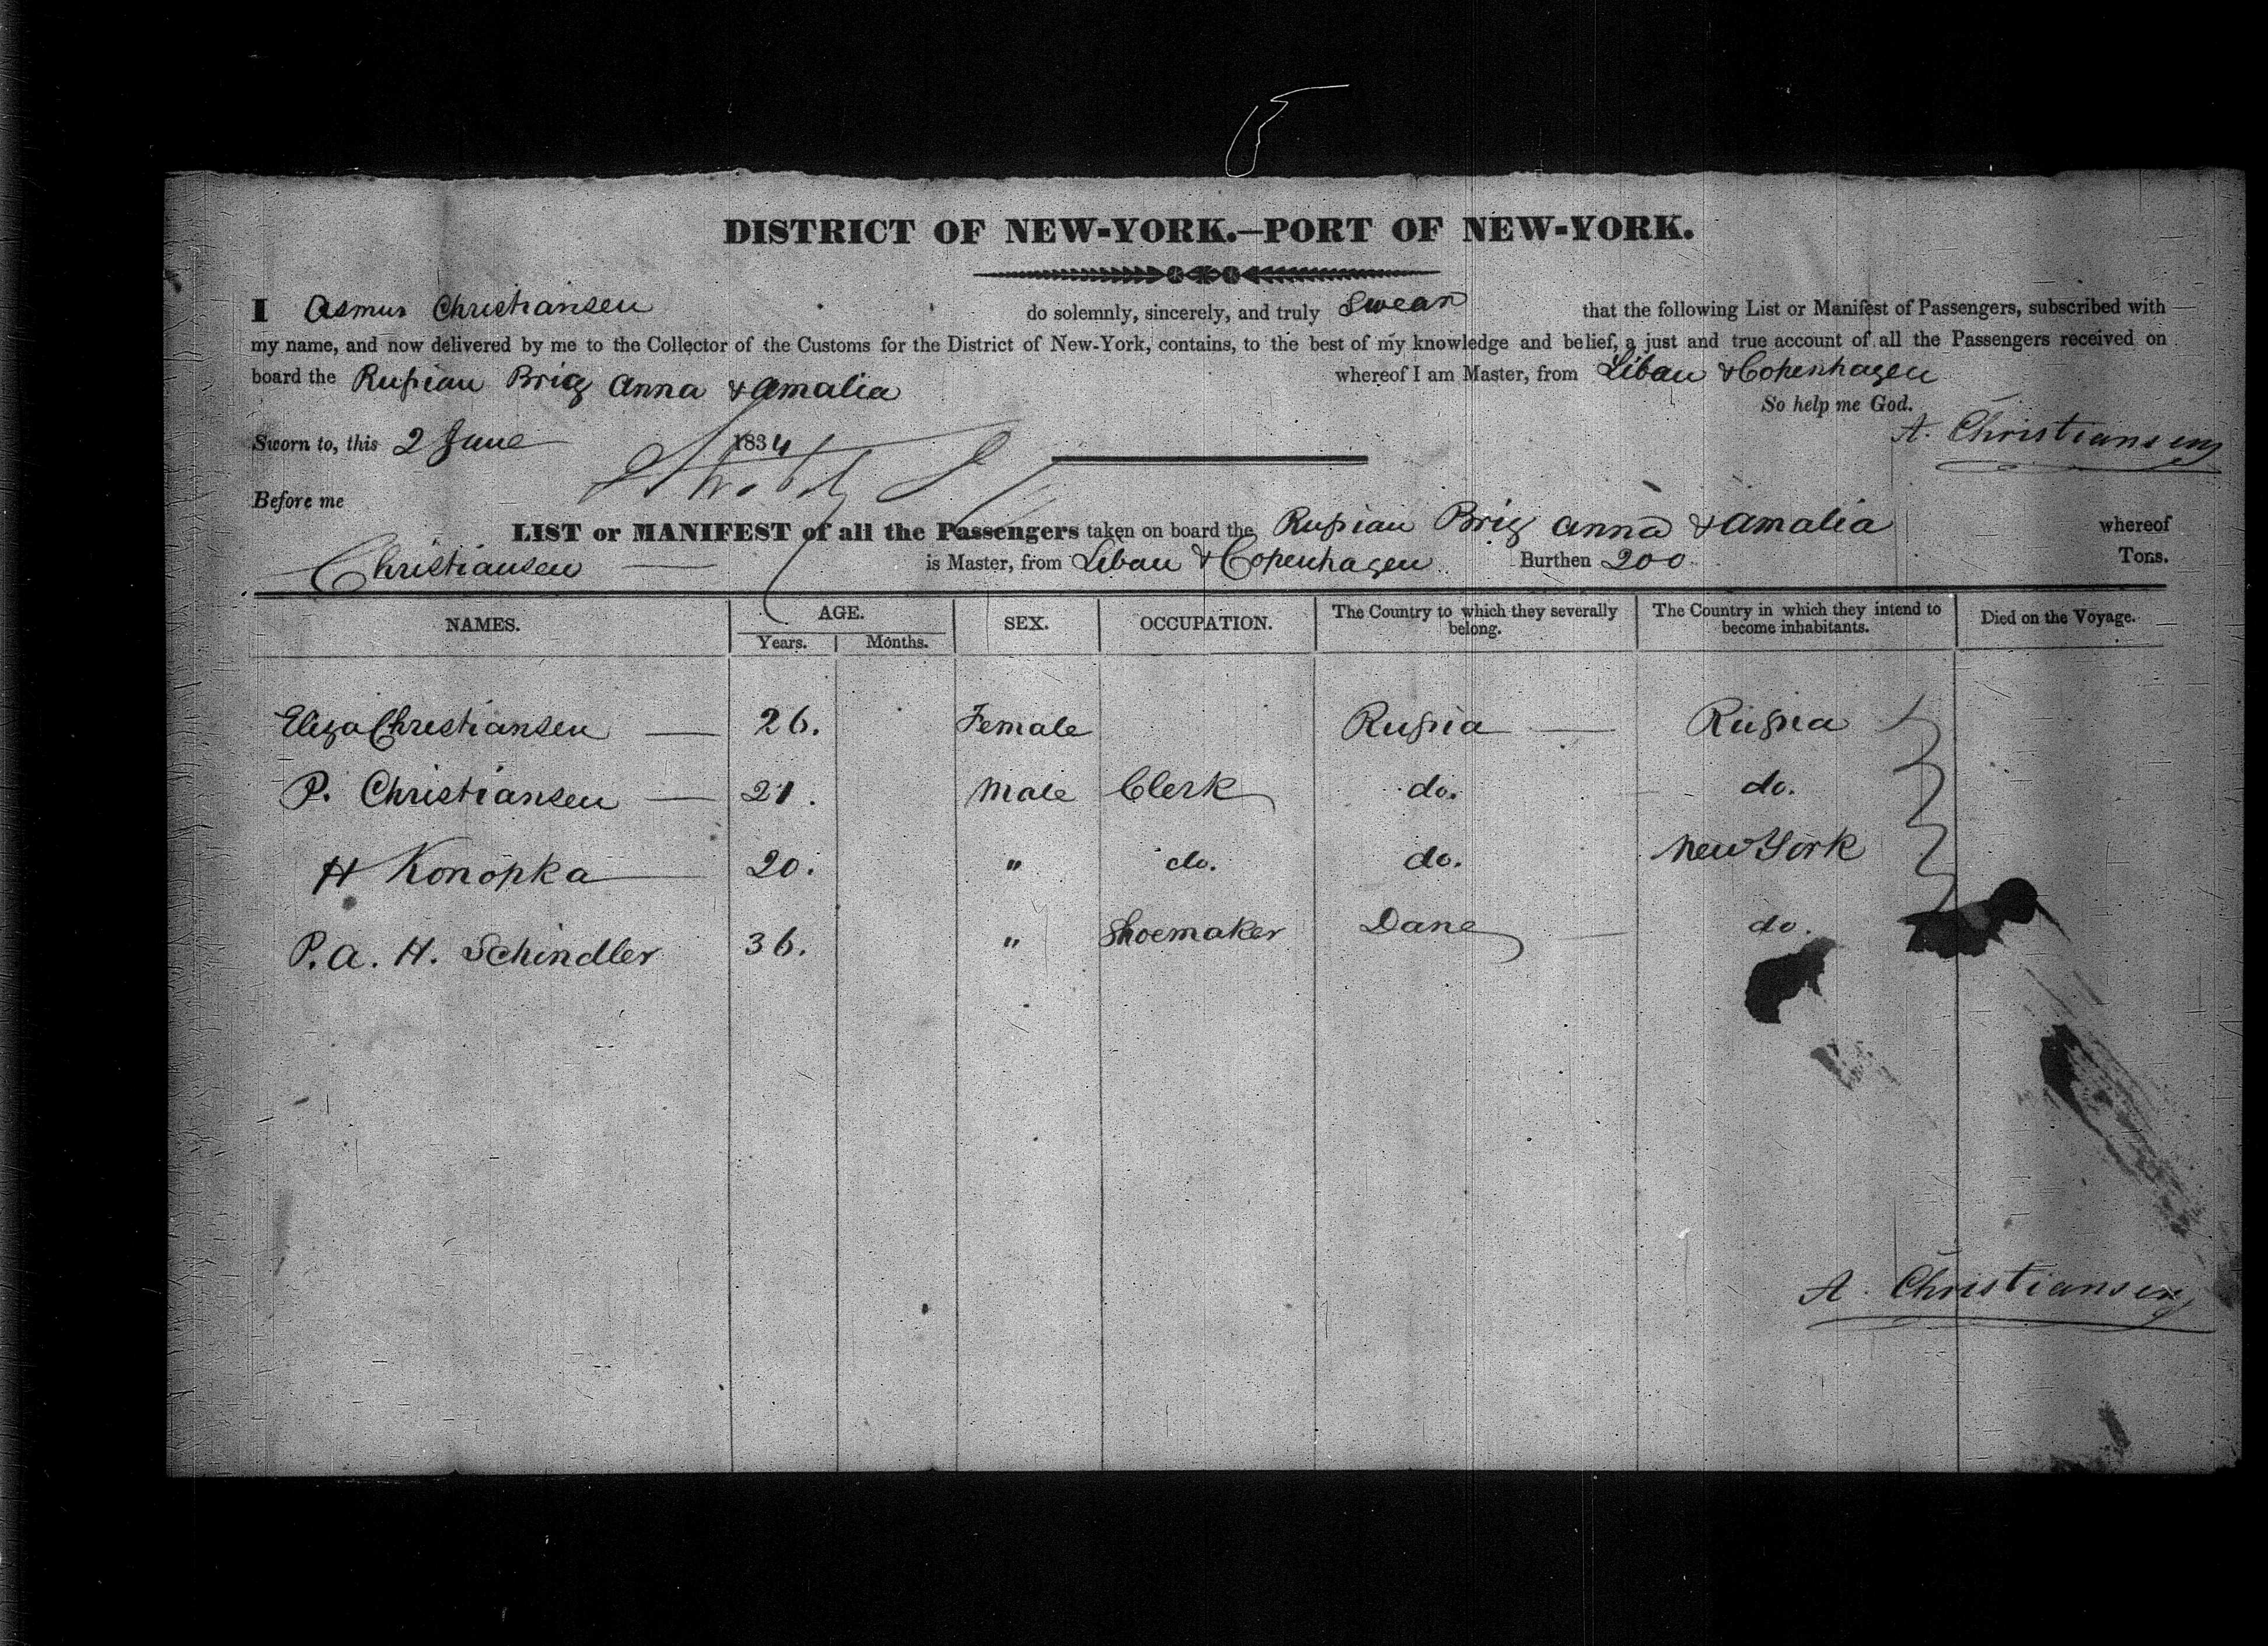 DISTRICT OF NEW-YORK.—PORT OF NEW-YORK.
I Asmus Christiansen do solemnly, sincerely, and truly Swear that the following List or Manifest of Passengers, subscribed with
my name, and now delivered by me to the Collector of the Customs for the District of New-York, contains, to the best of my knowledge and belief, a just and true account of all the Passengers received on
board the Russian Brig Anna & Amalia whereof I am Master, from Libau & Copenhagen
So help me God.
Sworn to, this 2 June 1834 A. Christiansen
Before me
LIST or MANIFEST of all the Passengers taken on board the Russian Brig Anna & Amalia whereof
Christiansen is Master, from Libau & Copenhagen Burthen 200 Tons.
NAMES. AGE. SEX. OCCUPATION. The Country to which they severally belong. The Country in which they intend to become inhabitants. Died on the Voyage.
Years. Months.
Eliza Christiansen — 26. Female Russia — Russia
P. Christiansen — 21. Male Clerk do. do.
H Konopka 20. " do. do. New York
P. A. H. Schindler 36. " Shoemaker Dane do.
A. Christiansen